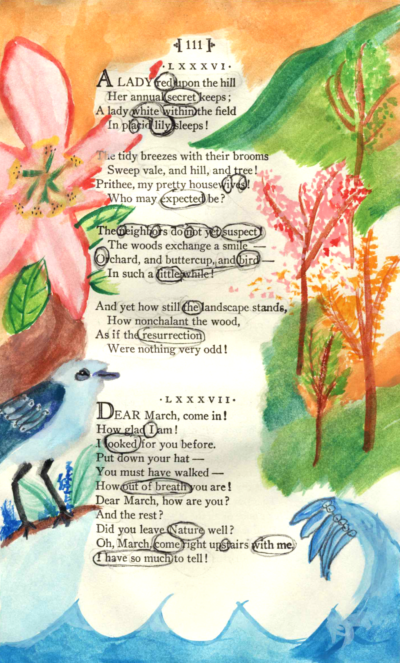 [ 111 ]
· L X X X V I ·
A LADY red upon the hill
Her annual secret keeps;
A lady white within the field
In placid lily sleeps!
The tidy breezes with their brooms
Sweep vale, and hill, and tree!
Prithee, my pretty housewives!
Who may expected be?
The neighbors do not yet suspect!
The woods exchange a smile —
Orchard, and buttercup, and bird —
In such a little while!
And yet how still the landscape stands,
How nonchalant the wood,
As if the resurrection
Were nothing very odd!
· L X X X V I I ·
DEAR March, come in!
How glad I am!
I looked for you before.
Put down your hat —
You must have walked —
How out of breath you are!
Dear March, how are you?
And the rest?
Did you leave Nature well?
Oh, March, come right upstairs with me,
I have so much to tell!